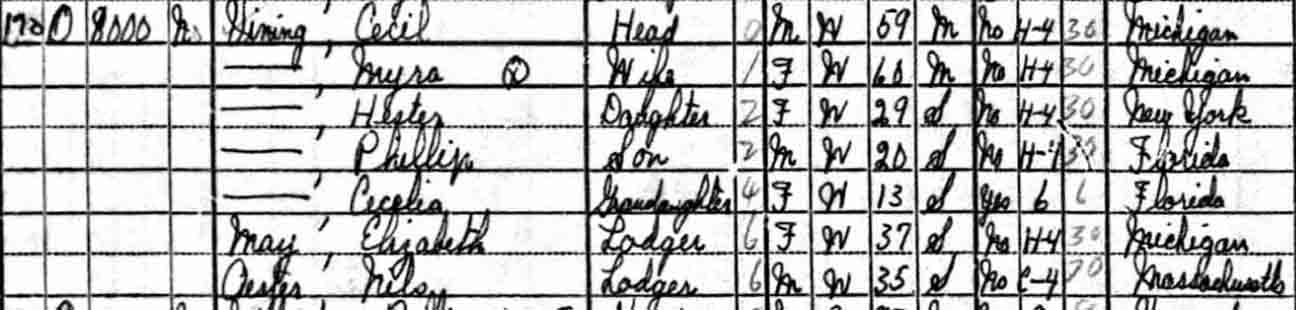 172 O 8000 No Vining, Cecil Head 0 M W 59 M No H-4 30 Michigan
——, Myra ⓧ Wife 1 F W 60 M No H-4 30 Michigan
——, Hester Daughter 2 F W 29 S No H-4 30 New York
——, Phillip Son 2 M W 20 S No H-4 30 Florida
——, Cecelia Grandaughter 4 F W 13 S Yes 6 6 Florida
May, Elizabeth Lodger 6 F W 37 S No H-4 30 Michigan
Lodger 6 M W 35 S No C-4 70 Massachusetts